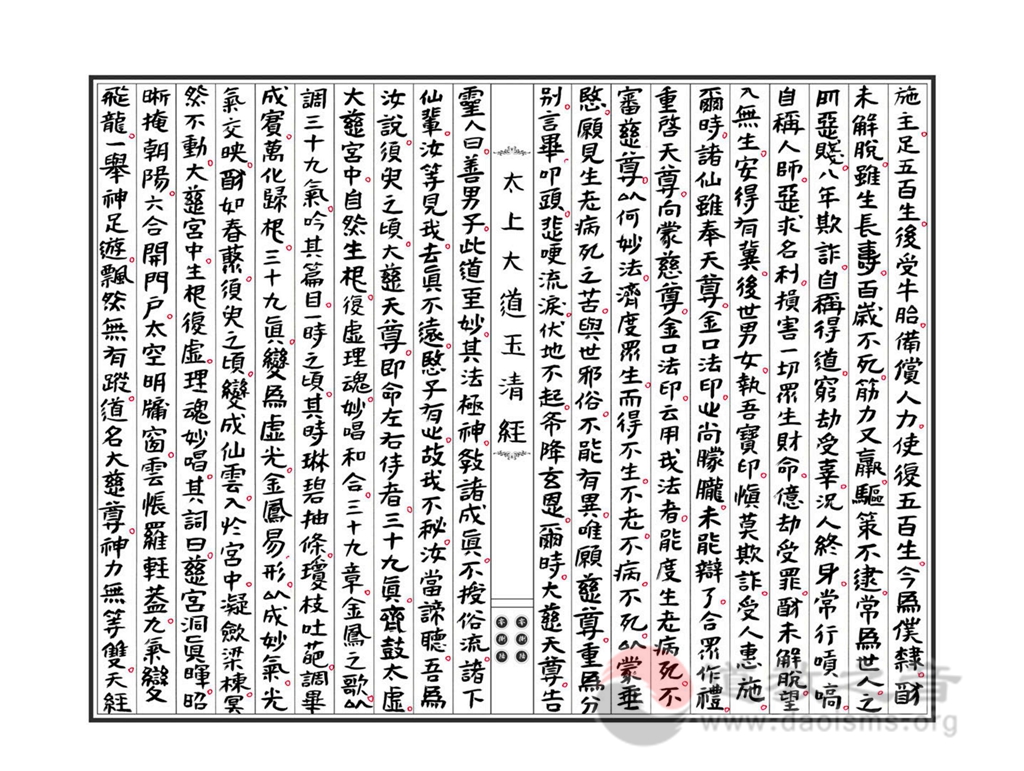 施主足五百生後受牛胎備償人力使復五百生今為僕隸酬
未解脫雖生長壽百歲不死筋力又羸驅策不逮常為世人之
所惡賤八年欺詐自稱得道窮劫受辜況人終身常行嘖嗃
自稱人師惡求名利損害一切眾生財命億劫受罪酬未解脫望
入無生安得有冀後世男女執吾寶印慎莫欺詐受人惠施
爾時諸仙雖奉天尊金口法印尚朦朧未能辯了合眾作禮
重啓天尊向蒙慈尊金口法印云用我法者能度生老病死不
審慈尊以何妙法濟度眾生而得不生不老不病不死以蒙垂
愍願見生老病死之苦與世邪俗不能有異唯願慈尊重為分
別言畢叩頭悲哽流淚伏地不起希降玄恩爾時大慈天尊告
太上大道玉清經
靈人曰善男子此道至妙其法極神敎諸成眞不授俗流諸下
仙輩汝等見我去眞不遠愍子有心故我不秘汝當諦聽吾為
汝說須臾之頃大慈天尊即命左右侍者三十九眞齊鼓太虛
大慈宮中自然生棍復虛理魂妙唱和合三十九章金鳳之歌以
調三十九氣吟其篇目一時之頃其時琳碧抽條瓊枝吐葩調畢
成賓萬化歸棍三十九眞變為虛光金鳳易形以成妙氣光
氣交映酬如春蘂須臾之頃變成仙雲入於宮中凝斂梁棟冥
然不動大慈宮中生棍復虛理魂妙唱其詞曰慈宮洞眞暉昭
晰掩朝陽六合開門戶太空明牖窗雲帳羅輊蓋九氣變
飛龍一舉神足遊飄然無有蹤道名大慈尊神力無等雙天經
道教之音
www.daoisms.org